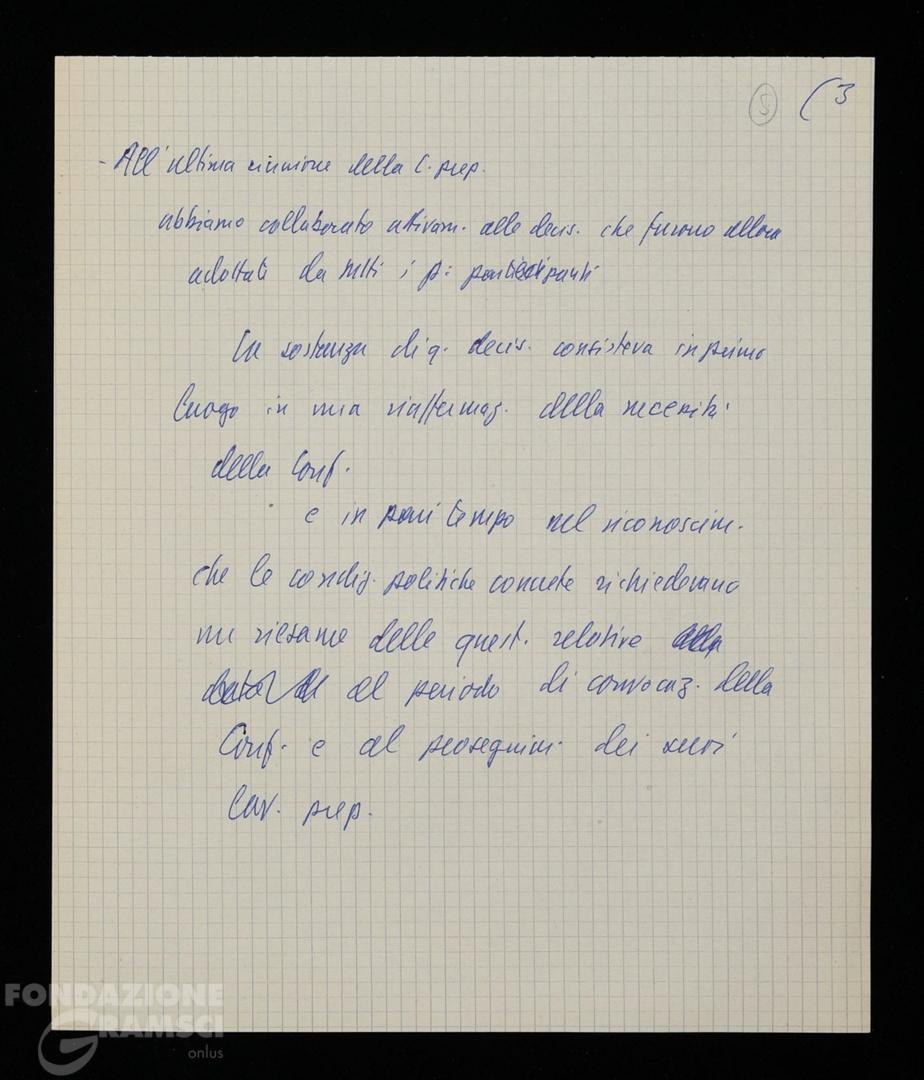 5 (3
- All'ultima riunione della C. prep.
abbiamo collaborato attivam. alle decis. che furono allora
adottate da tutti i p. partecipanti
La sostanza di q. decis. consisteva in primo
luogo in una riaffermaz. della necessità
della Conf.
e in pari tempo nel riconoscim.
che le condiz. politiche concrete richiedevano
un riesame delle quest. relative alla
data al periodo di convocaz. della
Conf. e al proseguim. dei suoi
lav. prep.
FONDAZIONE
GRAMSCI
onlus